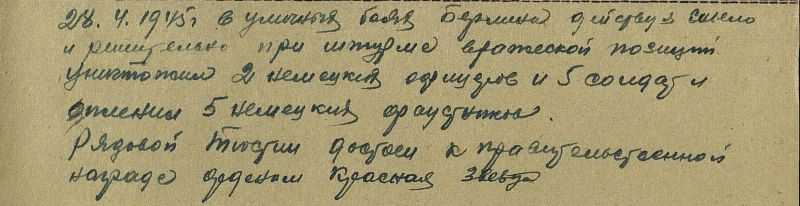 28.4.1945г в уличных боях Берлина действуя смело
и решительно при штурме вражеской позиции
уничтожил 2 немецких офицеров и 5 солдат и
пленил 5 немецких
Рядовой достоин к правительственной
награде орденом Красная Звезда